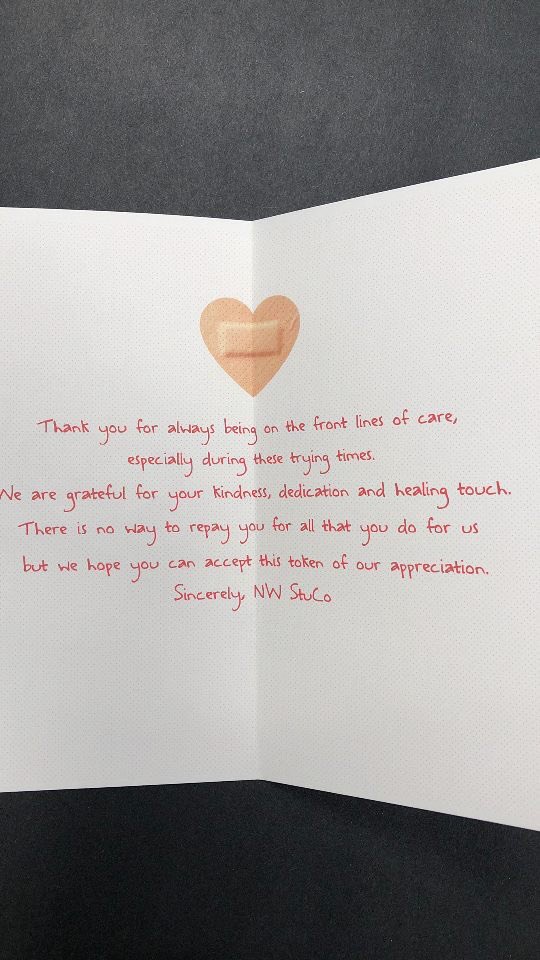 Thank you for always being on the front lines of care,
especially during these trying times.
We are grateful for your kindness, dedication and healing touch.
There is no way to repay you for all that you do for us
but we hope you can accept this token of our appreciation.
Sincerely, NW StuCo